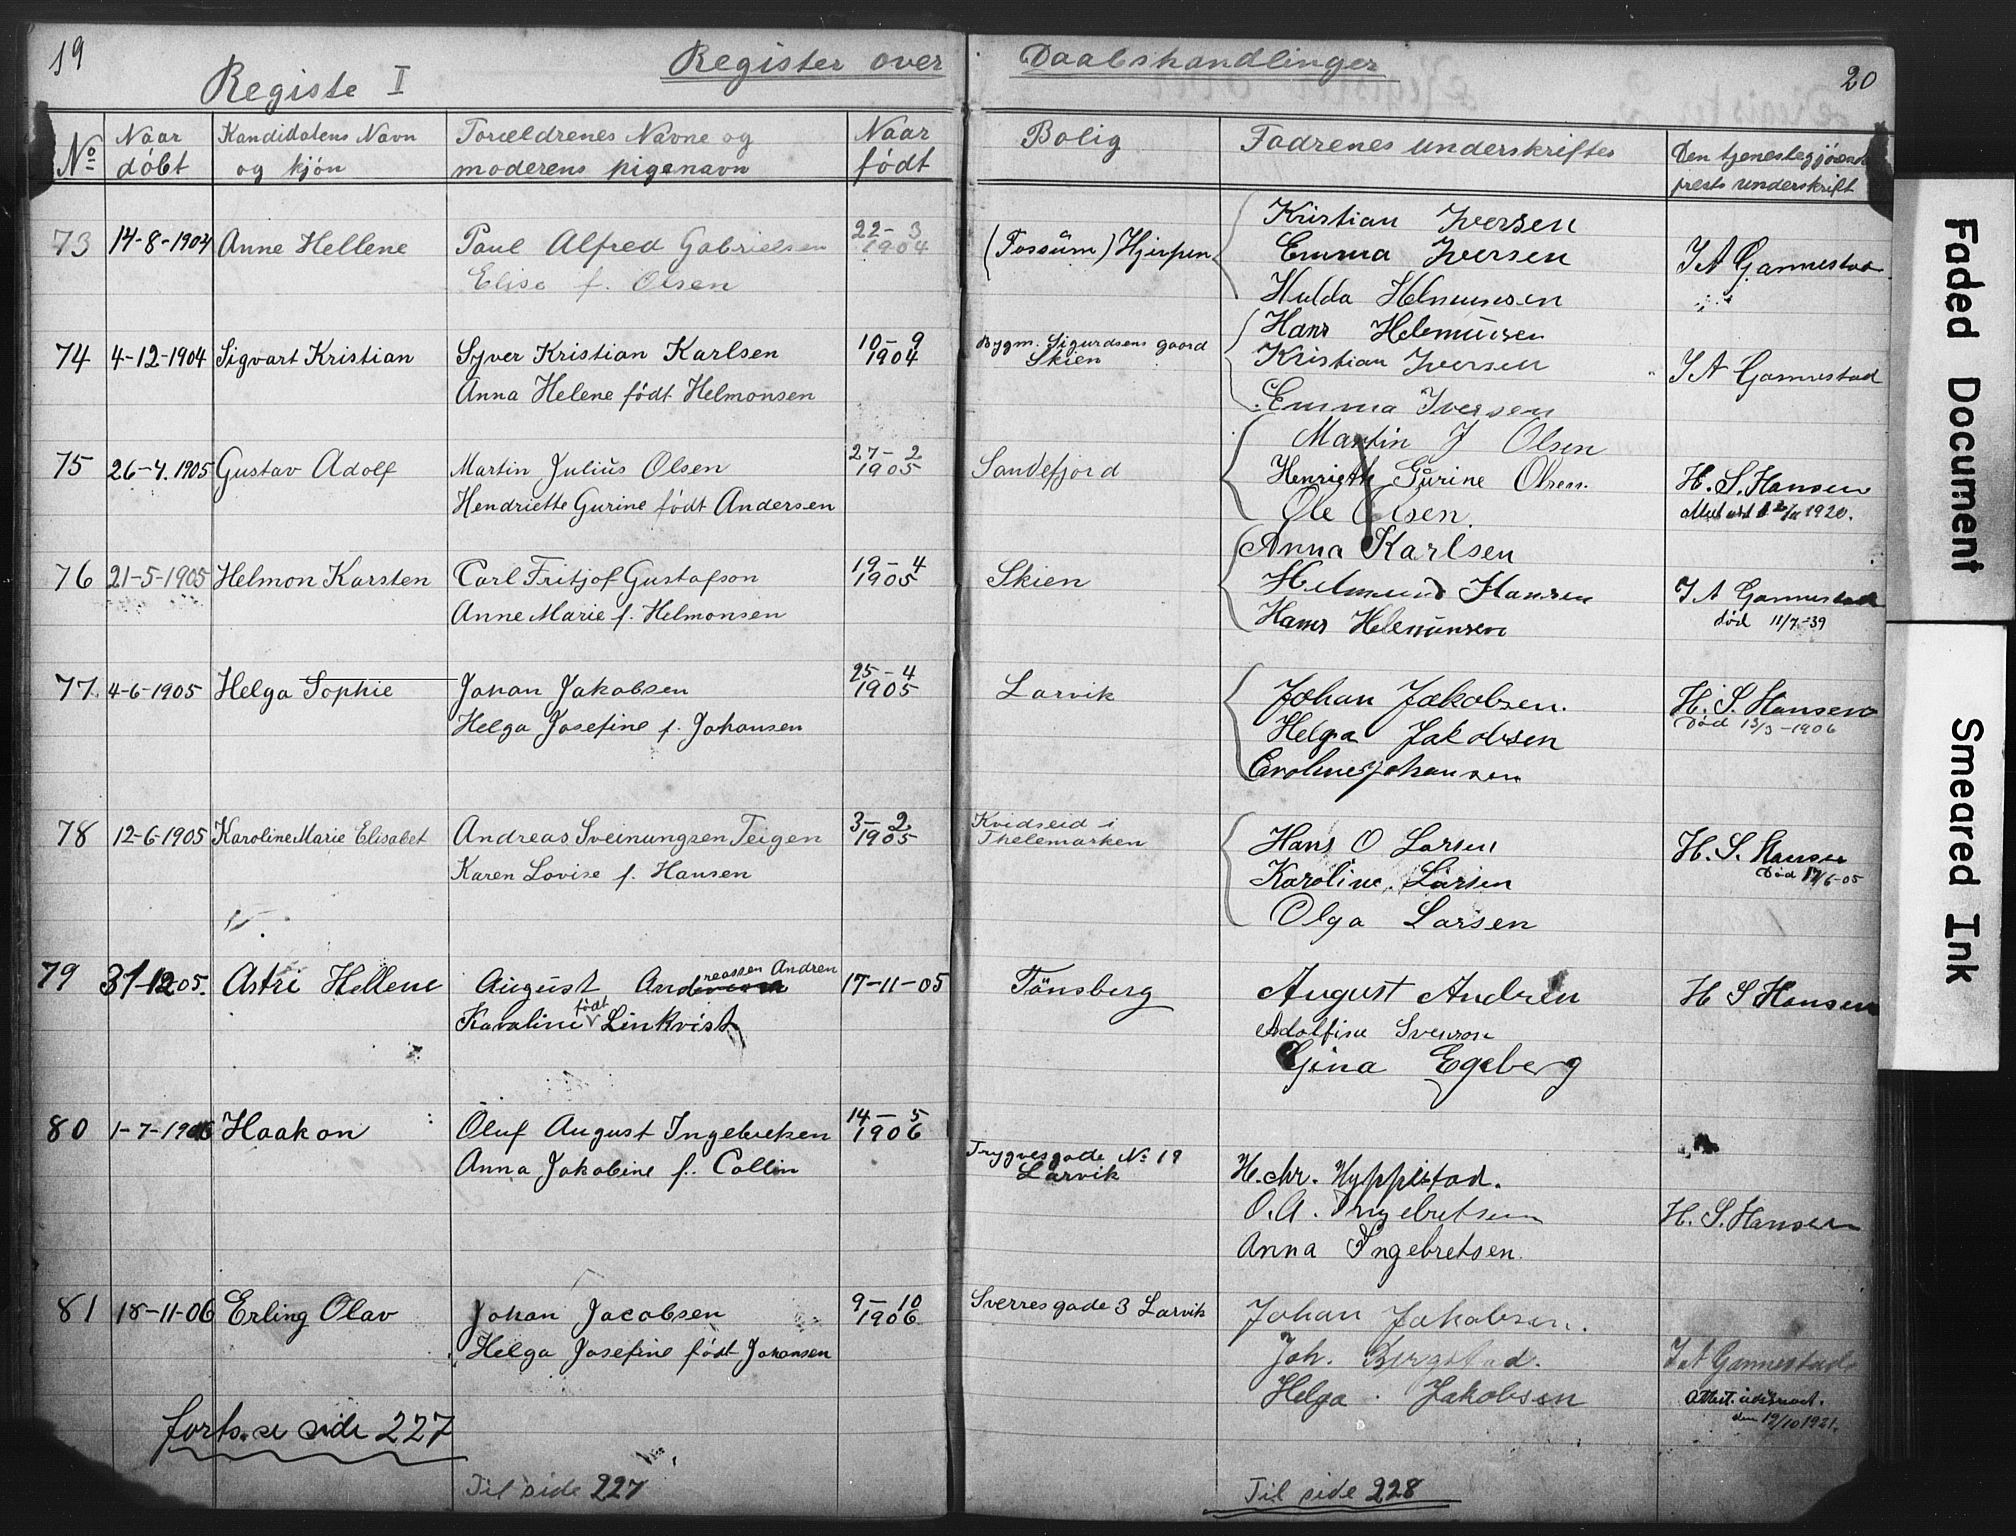 19
Registe I
Register over
Daabshandlinger
20
No
Naar døbt
Kandidatens Navn og kjøn
Forældrenes Navne og moderens pigenavn
Naar født
Bolig
Fadrenes underskrifter
Den tjenestegjørende prests underskrift
73
14-8-1904
Anne Hellene
Paul Alfred Gabrielsen
Elise f. Olsen
22-3 1904
(Fossum) Hjerpen
Kristian Iversen
Emma Iversen
Hulda Helmunsen
I A Gannestad
74
4-12-1904
Sigvart Kristian
Syver Kristian Karlsen
Anna Helene født Helmonsen
10-9 1904
Bygm. Sigurdsens gaard
Skien
Hans Helemunsen
Kristian Iversen
Emma Iversen
I A Gannestad
75
26-4.1905
Gustav Adolf
Martin Julius Olsen
Hendriette Gurine født Andersen
27-2 1905
Sandefjord
Martin J Olsen
Henriette Gurine Olsen.
Ole Olsen.
H. S. Hansen
1920.
76
21-5-1905
Helmon Karsten
Carl Fritjof Gustafson
Anne Marie f. Helmonsen
19-4 1905
Skien
Anna Karlsen
Helmund Hansen
Hans Helemunsen
I A Gannestad
død 11/7-39
77.
4-6-1905
Helga Sophie
Johan Jakobsen
Helga Josefine f. Johansen
25-4 1905
Larvik
Johan Jakobsen.
Helga Jakobsen
Caroline Johansen
H. S. Hansen
Død 13/3-1906
78
12-6-1905
Karoline Marie Elisabet
Andreas Sveinungsen Teigen
Karen Lovise f. Hansen
3-2 1905
Kvidseid i
Thelemarken
Hans O Larsen
Karoline Larsen
Olga Larsen
H. S. Hansen
Død 17/6-05
79
31-12-05.
Astri Hellene
August Andreassen Andren
Karoline født Linkvist
17-11-05
Tønsberg
August Andren
Adolfine Svenson
Gina Egeberg
H S Hansen
80
1-7-1906
Haakon
Oluf August Ingebreksen
Anna Jakobine f. Collin
14-5 1906
Trygvesgade No 19
Larvik
H. Chr. Hyppestad.
O. A. Ingebretsen
Anna Ingebretsen.
H. S. Hansen
81
18-11-06
Erling Olav
Johan Jacobsen
Helga Josefine født Johansen
9-10 1906
Sverresgade 3 Larvik
Johan Jakobsen.
Joh. Bergstad.
Helga Jakobsen
I A Gannestad
Attest. udstedt.
den 19/10 1921.
forts. se side 227
Til side 227
Til side 228
Faded Document
Smeared Ink